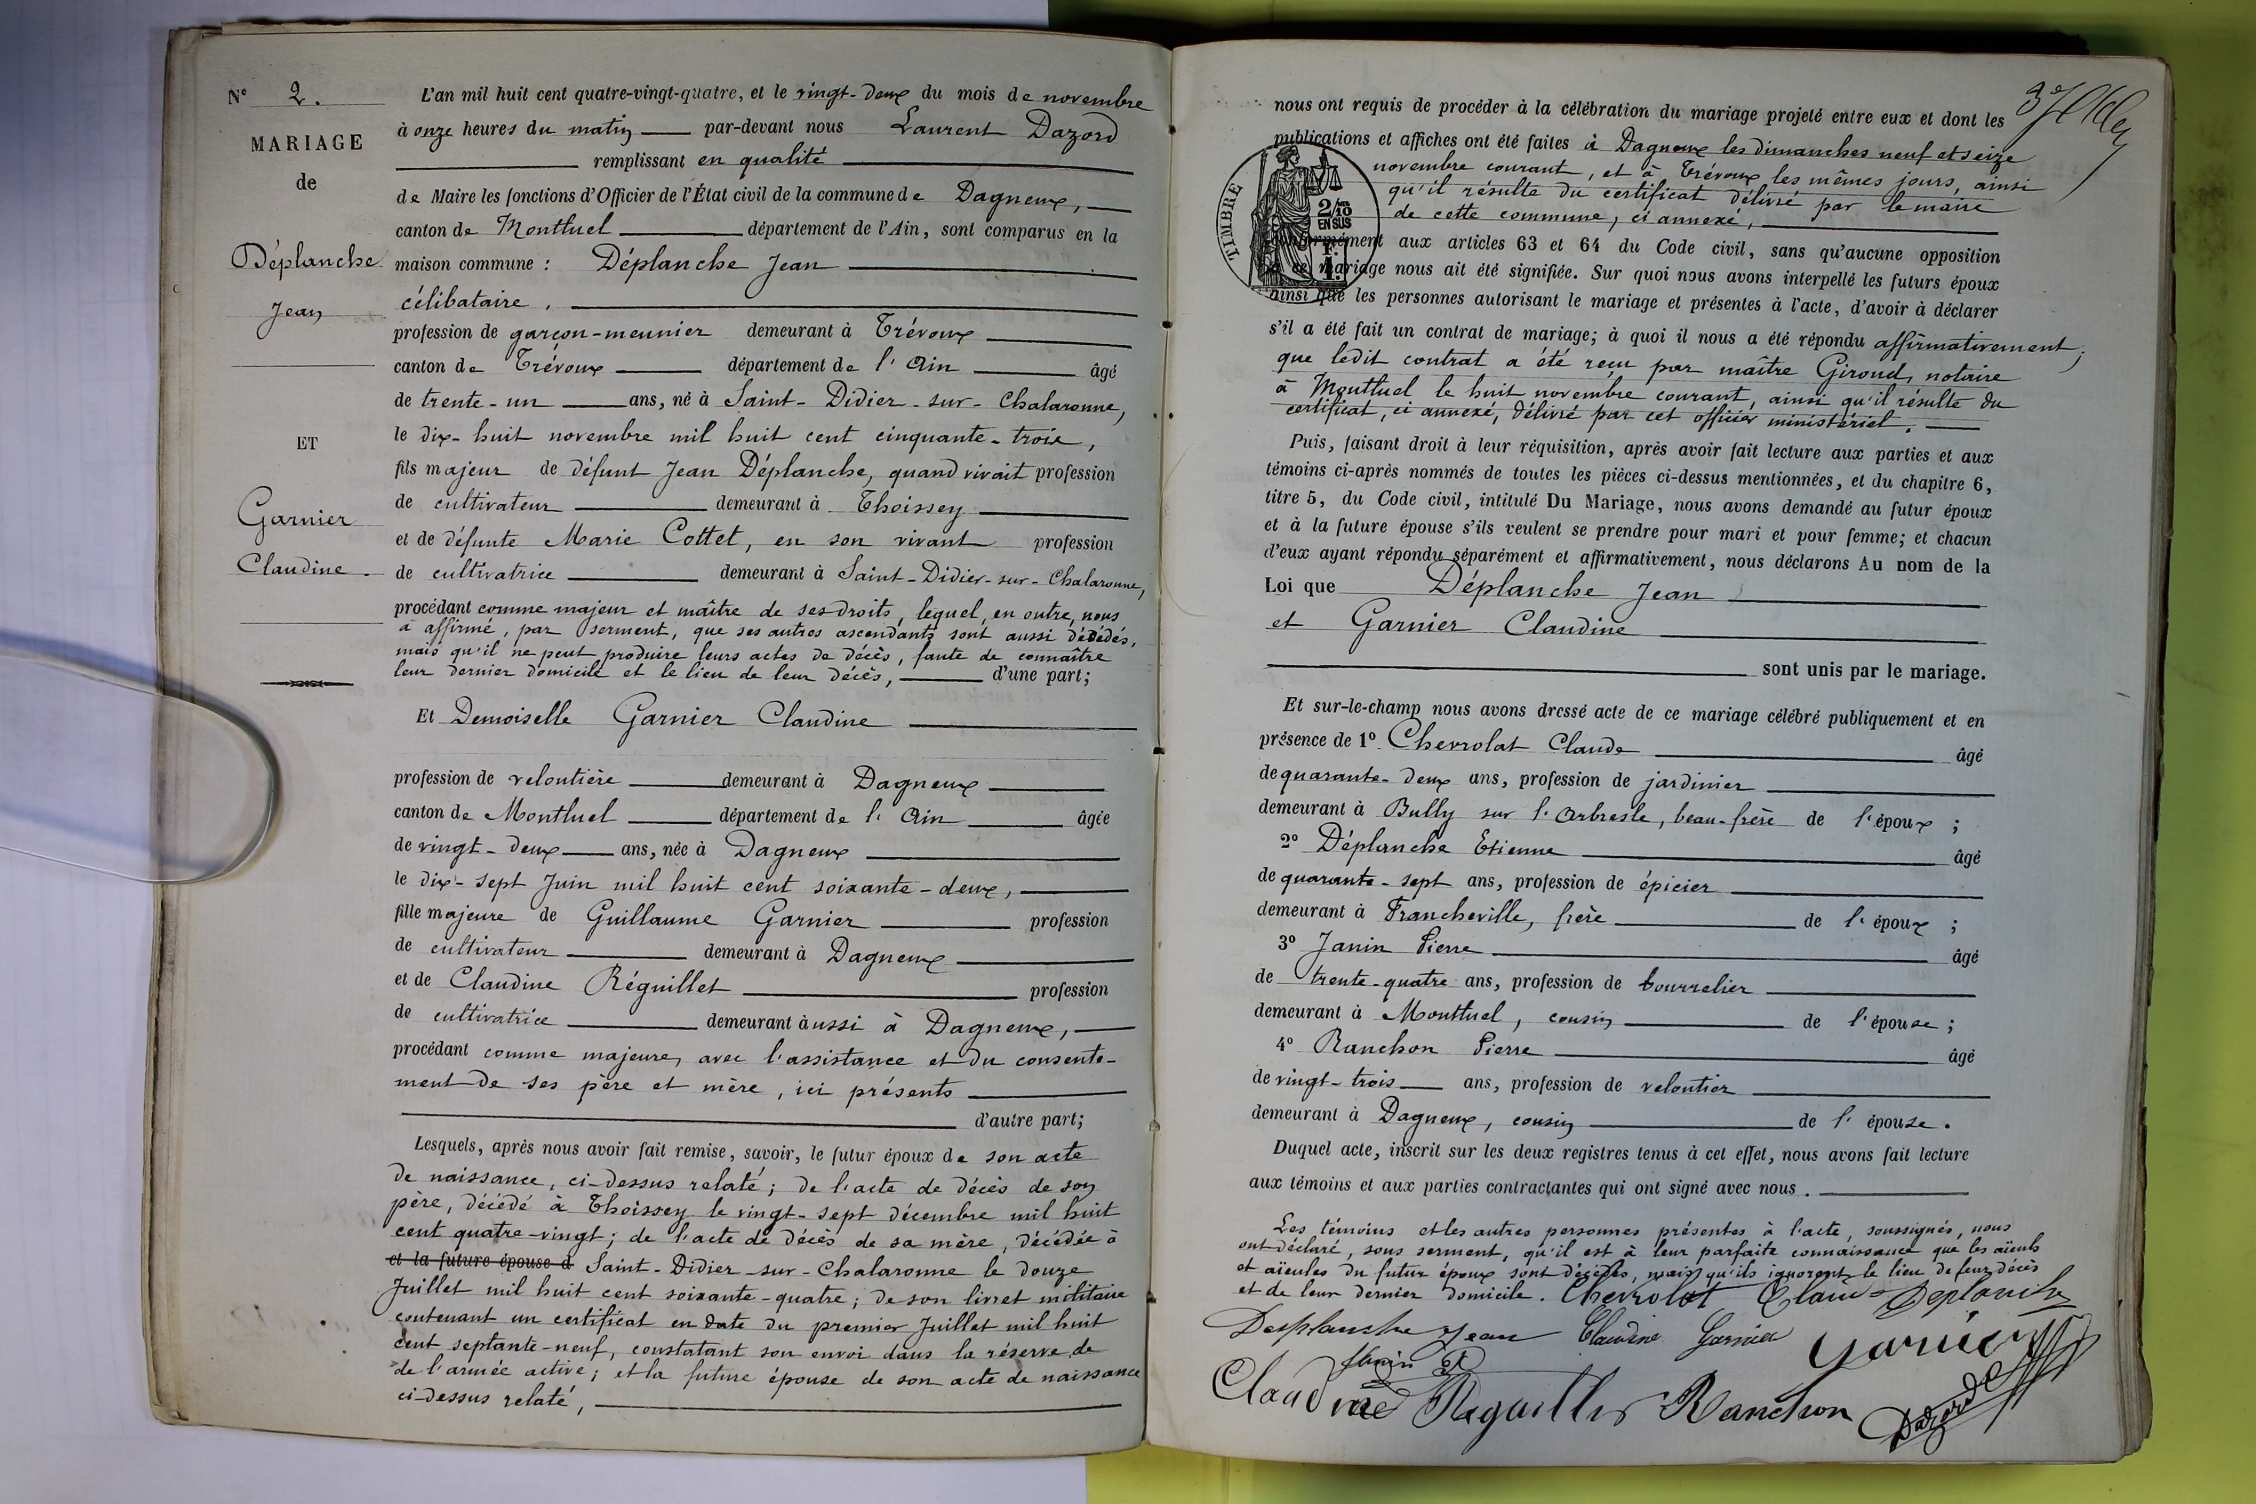 N° 2.
MARIAGE
de
Déplanche
Jean
ET
Garnier
Claudine
L'an mil huit cent quatre-vingt-quatre, et le vingt-deux du mois de novembre
à onze heures du matin par-devant nous Laurent Dazord
remplissant en qualité
de Maire les fonctions d'Officier de l'État civil de la commune de Dagneux,
canton de Montluel département de l'Ain, sont comparus en la
maison commune : Déplanche Jean
célibataire,
profession de garçon-meunier demeurant à Trévoux
canton de Trévoux département de l'Ain âgé
de trente-un ans, né à Saint-Didier-sur-Chalaronne,
le dix-huit novembre mil huit cent cinquante-trois,
fils majeur de défunt Jean Déplanche, quand vivait profession
de cultivateur demeurant à Thoissey
et de défunte Marie Cottet, en son vivant profession
de cultivatrice demeurant à Saint-Didier-sur-Chalaronne,
procédant comme majeur et maître de ses droits, lequel, en outre, nous
a affirmé, par serment, que ses autres ascendants sont aussi décédés,
mais qu'il ne peut produire leurs actes de décès, faute de connaître
leur dernier domicile et le lieu de leur décès, d'une part;
Et Demoiselle Garnier Claudine
profession de veloutière demeurant à Dagneux
canton de Montluel département de l'Ain âgée
de vingt-deux ans, née à Dagneux
le dix-sept Juin mil huit cent soixante-deux,
fille majeure de Guillaume Garnier profession
de cultivateur demeurant à Dagneux
et de Claudine Réguillet profession
de cultivatrice demeurant aussi à Dagneux,
procédant comme majeure, avec l'assistance et du consente-
ment de ses père et mère, ici présents
d'autre part;
Lesquels, après nous avoir fait remise, savoir, le futur époux de son acte
de naissance, ci-dessus relaté; de l'acte de décès de son
père, décédé à Thoissey le vingt-sept décembre mil huit
cent quatre-vingt; de l'acte de décès de sa mère, décédée à
et la future épouse d Saint-Didier-sur-Chalaronne le douze
Juillet mil huit cent soixante-quatre; de son livret militaire
contenant un certificat en date du premier Juillet mil huit
cent septante-neuf, constatant son envoi dans la réserve de
de l'armée active; et la future épouse de son acte de naissance
ci-dessus relaté,
nous ont requis de procéder à la célébration du mariage projeté entre eux et dont les
publications et affiches ont été faites à Dagneux les dimanches neuf et seize
novembre courant, et à Trévoux les mêmes jours, ainsi
qu'il résulte du certificat délivré par le maire
de cette commune, ci annexé,
TIMBRE
2/10
EN SUS
conformément aux articles 63 et 64 du Code civil, sans qu'aucune opposition
à ce mariage nous ait été signifiée. Sur quoi nous avons interpellé les futurs époux
ainsi que les personnes autorisant le mariage et présentes à l'acte, d'avoir à déclarer
s'il a été fait un contrat de mariage; à quoi il nous a été répondu affirmativement;
que ledit contrat a été reçu par maître Giroud, notaire
à Montluel le huit novembre courant, ainsi qu'il résulte du
certificat, ci annexé, délivré par cet officier ministériel.
Puis, faisant droit à leur réquisition, après avoir fait lecture aux parties et aux
témoins ci-après nommés de toutes les pièces ci-dessus mentionnées, et du chapitre 6,
titre 5, du Code civil, intitulé Du Mariage, nous avons demandé au futur époux
et à la future épouse s'ils veulent se prendre pour mari et pour femme; et chacun
d'eux ayant répondu séparément et affirmativement, nous déclarons Au nom de la
Loi que Déplanche Jean
et Garnier Claudine
sont unis par le mariage.
Et sur-le-champ nous avons dressé acte de ce mariage célébré publiquement et en
présence de 1° Chevrolat Claude âgé
de quarante-deux ans, profession de jardinier
demeurant à Bully sur l'Arbresle, beau-frère de l'époux ;
2° Déplanche Etienne âgé
de quarante-sept ans, profession de épicier
demeurant à Francheville, frère de l'époux ;
3° Janin Pierre âgé
de trente-quatre ans, profession de bourrelier
demeurant à Montluel, cousin de l'épouse ;
4° Ranchon Pierre âgé
de vingt-trois ans, profession de veloutier
demeurant à Dagneux, cousin de l'épouse.
Duquel acte, inscrit sur les deux registres tenus à cet effet, nous avons fait lecture
aux témoins et aux parties contractantes qui ont signé avec nous.
Les témoins et les autres personnes présentes à l'acte, soussignés, nous
ont déclaré, sous serment, qu'il est à leur parfaite connaissance que les aïeuls
et aïeules du futur époux sont décédés, mais qu'ils ignorent le lieu de leur décès
et de leur dernier domicile. Chevrolat Claude Deplanche
Desplanche Jean Claudine Garnier Garnier
Janin
Claudine Reguillet Ranchon Dazord